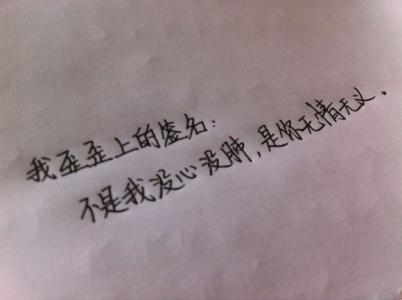 我歪歪上的签名:
不是我没心没肺,是你无情无义。